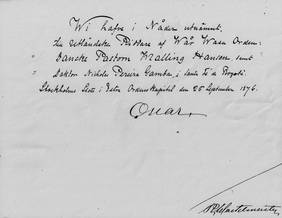 Wi hafve i Nåder utnämnt:
till Utländske Riddare af Wår Wasa Orden:
Danske Pastorn Kalling Hansen, samt
Doktor Nicholas Pereira Gamba, i Santa Fé de Bogotá.
Stockholms Slott i Extra Ordenskapitel den 25 September 1876.
Oscar.